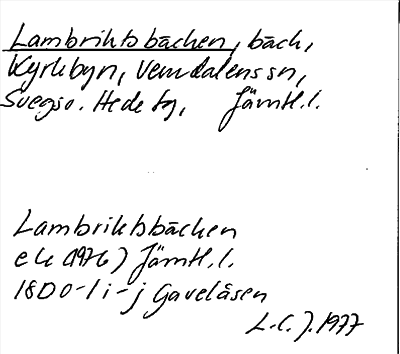 Lambriktsbäcken, bäck,
Kyrkbyn, Vemdalens sn,
Svegs o. Hede tg, Jämtl.l.
Lambriktsbäcken
ek (1976) Jämtl.l.
18D 0-1 i-j Gavelåsen
L.C.J. 1977